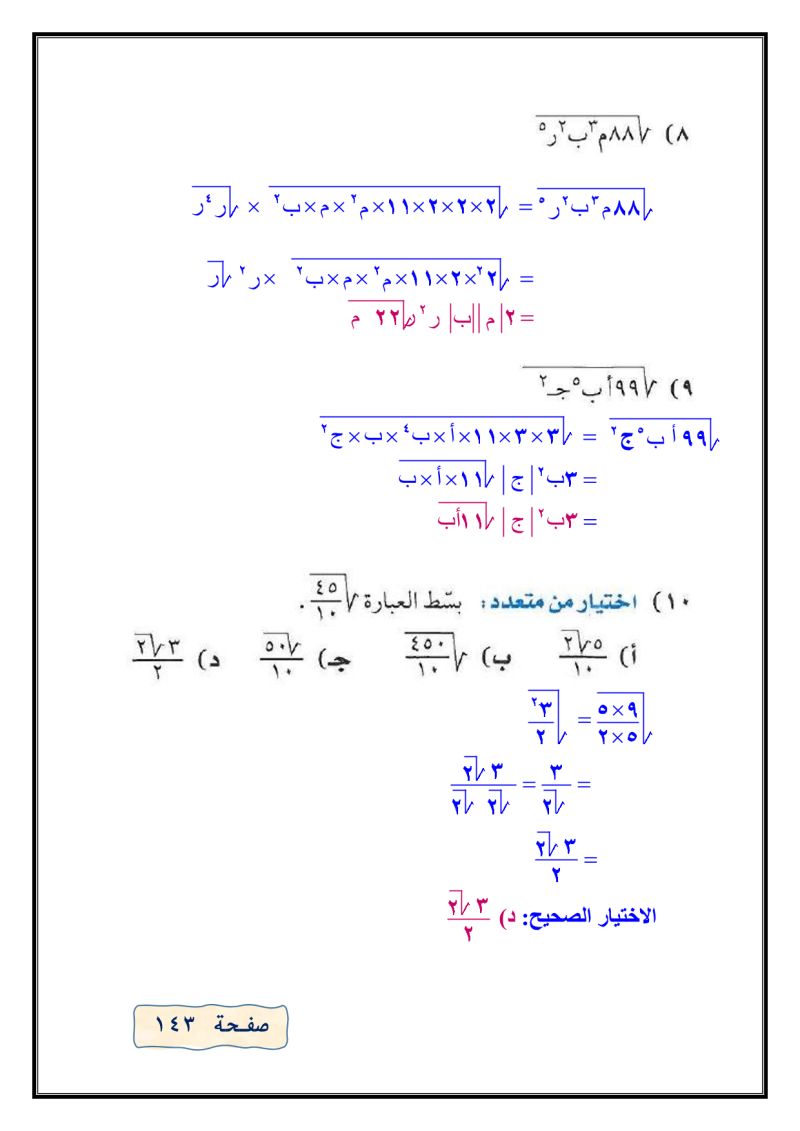 ٨) √(٨٨م٣ب٢ر٥)
√(٨٨م٣ب٢ر٥) = √(٢×٢×٢×١١×م٢×م×ب٢) × √(ر٤ر)
= √(٢٢×٢×١١×م٢×م×ب٢) ×ر٢ √ر
=٢|م||ب| ر٢√(٢٢ م ر)
٩) √(٩٩أ ب٥جـ٢)
√(٩٩أ ب٥ج٢) = √(٣×٣×١١×أ×ب٤×ب×ج٢)
=٣ب٢|ج|√(١١×أ×ب)
=٣ب٢|ج|√(١١أب)
١٠) اختيار من متعدد: بسّط العبارة √(٤٥/١٠) .
أ) ٥√٢/١٠ ب) √(٤٥٠/١٠) جـ) √٥٠/١٠ د) ٣√٢/٢
√(٩×٥/٥×٢) = √(٣٢/٢)
= ٣/√٢ = ٣√٢/√٢ √٢
= ٣√٢/٢
الاختيار الصحيح: د) ٣√٢/٢
صفحة ١٤٣